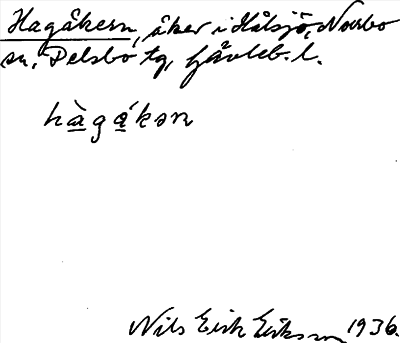 Hagåkern, åker i Hålsjö, Norrbo
sn, Delsbo tg, Gävleb. l.
hàgákən
Nils Erik Eriksson 1936.